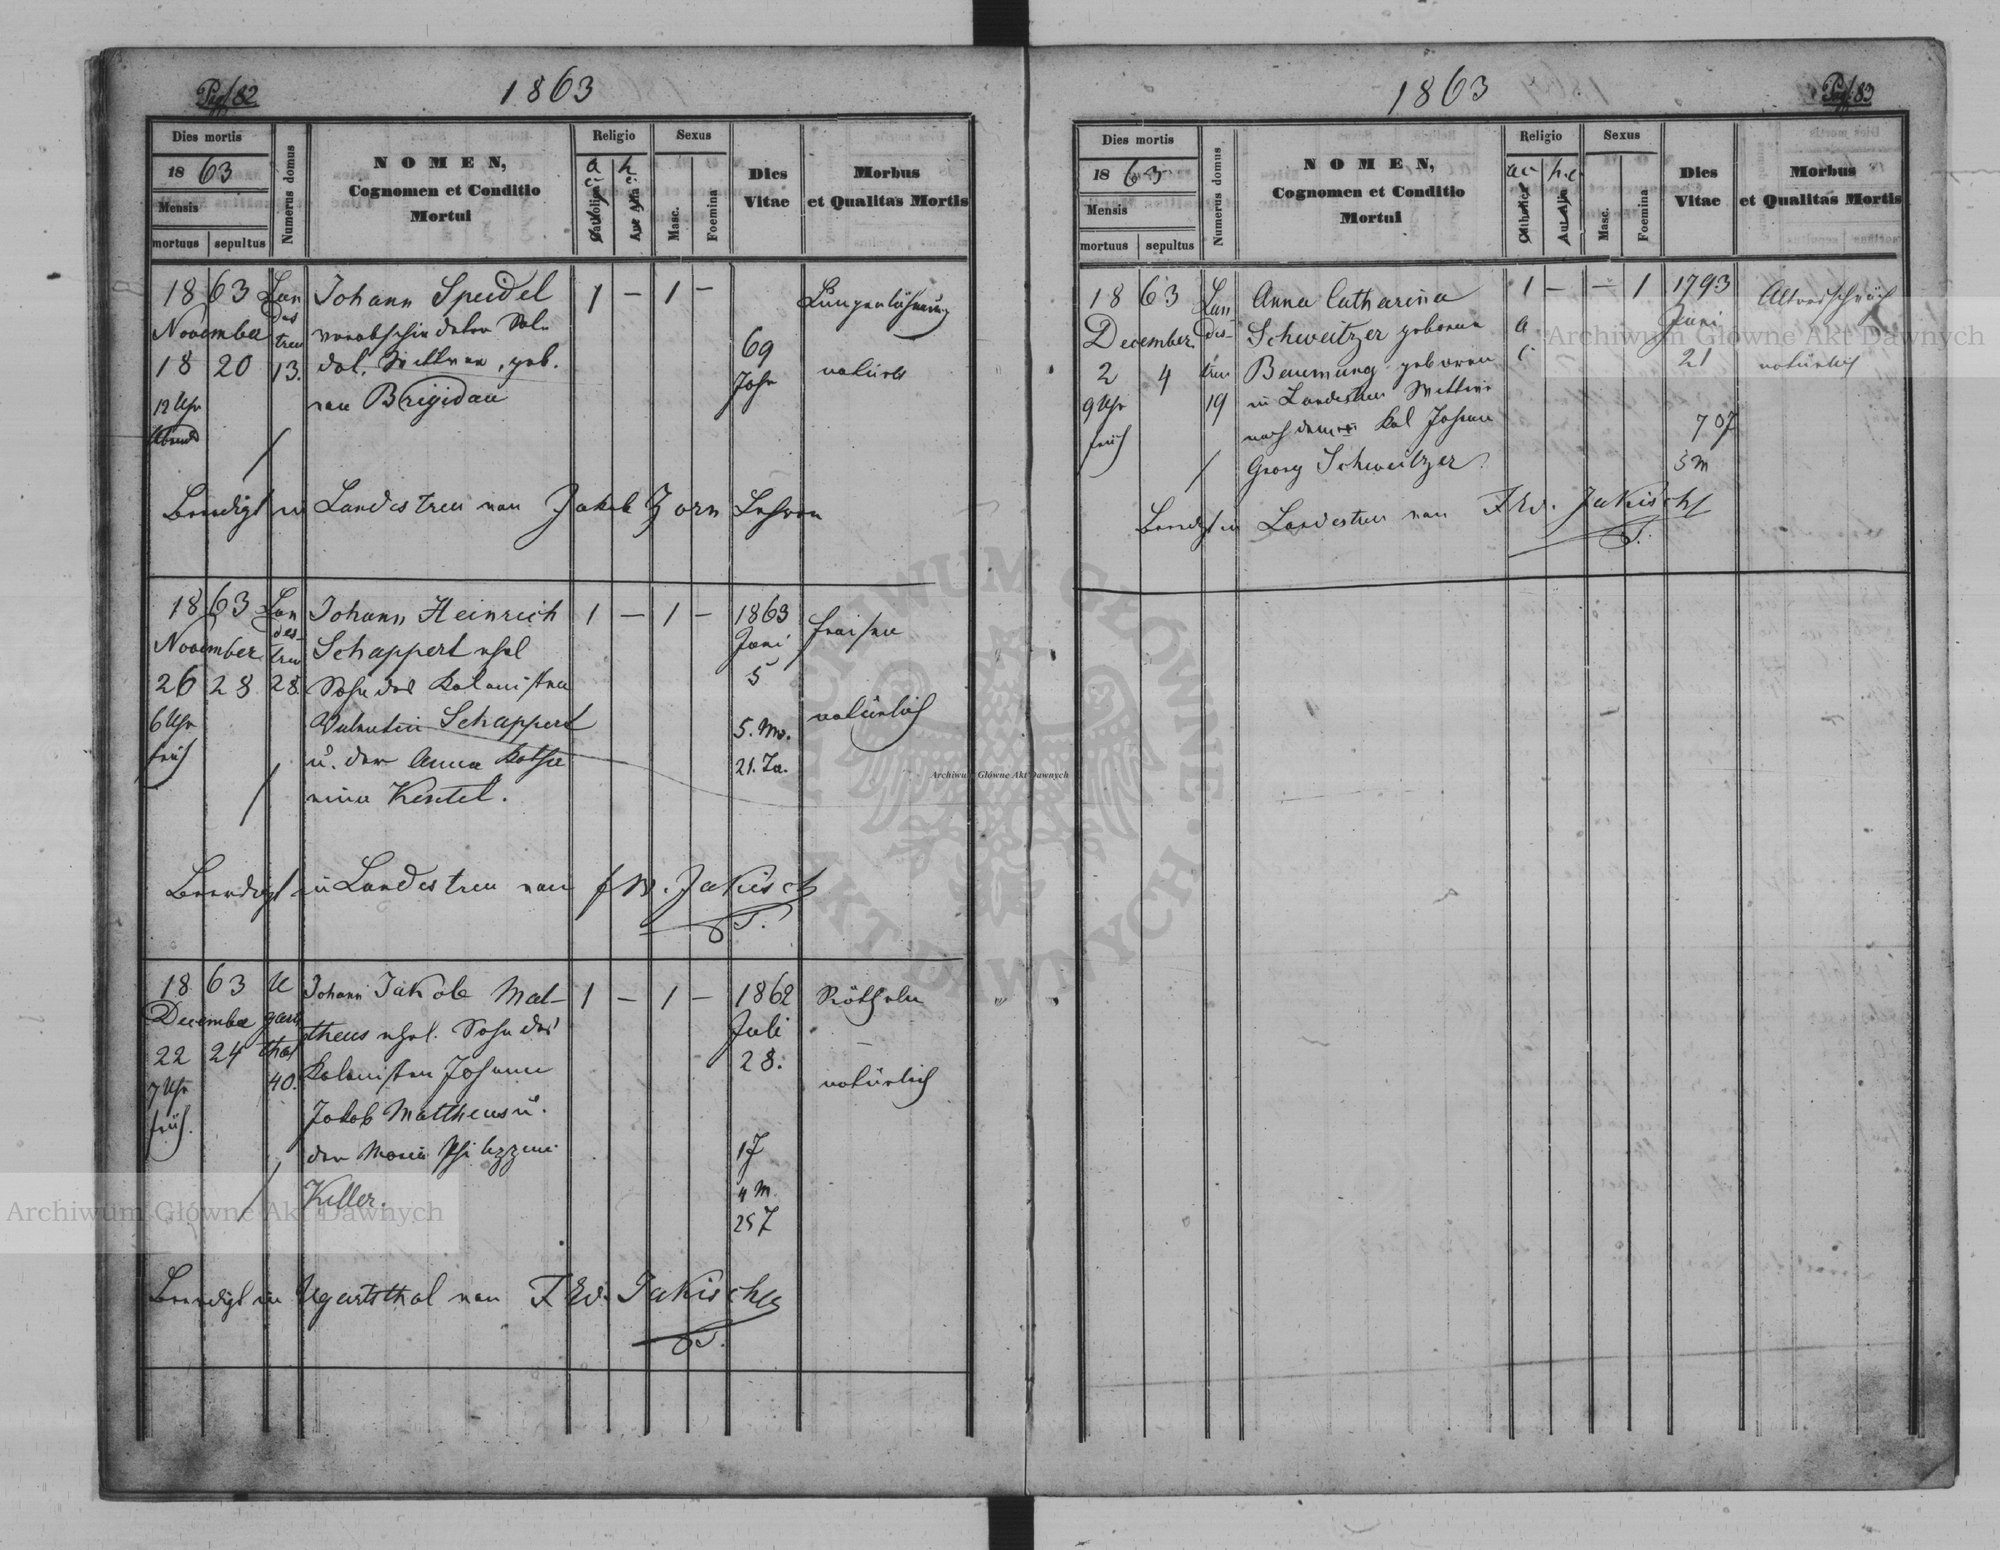 Pag. 82
1863
Dies mortis
1863
Mensis
mortuus sepultus
Numerus domus
NOMEN,
Cognomen et Conditio
Mortui
Religio
a c
h c
Catholica
Aut Alia
Sexus
Masc.
Foemina
Dies
Vitae
Morbus
et Qualitas Mortis
1863
November
18 20
12 Uhr
Abends
Lan
des
treu
13.
Johann Speidel
verabschiedeter Sol-
dat, Wittwer, geb.
von Brigidau
1 — 1 —
69
Jahr
Lungenlähmung
natürl.
Beerdigt in Landestreu von Jakob Zorn Lehrer
1863
November
26 28
6 Uhr
früh
Lan
des-
treu
28.
Johann Heinrich
Schappert ehel
Sohn des Kolonisten
Valentin Schappert
u. der Anna Katha
rina Kentel.
1 — 1 —
1863
Juni
5
5. Mo.
21. Ta.
Fraisen
natürlich
Beerdigt in Landestreu von F W. Jakisch
1863
December
22 24
7 Uhr
früh.
U
garts
thal
40.
Johann Jakob Mat-
theus ehel. Sohn des
Kolonisten Johann
Jakob Mattheus u.
der Maria
Keller.
1 — 1 —
1862
Juli
28.
1 J
4 M.
25 T
Rötheln
natürlich
Beerdigt in Ugartsthal von F W. Jakisch
Pag. 83
1863
Dies mortis
1863
Mensis
mortuus sepultus
Numerus domus
NOMEN,
Cognomen et Conditio
Mortui
Religio
a c
h. c
Catholica
Aut Alia
Sexus
Masc.
Foemina
Dies
Vitae
Morbus
et Qualitas Mortis
1863
December
2 4
9 Uhr
früh
Lan-
des-
treu
19
Anna Catharina
Schweitzer geborene
Baumung geboren
in Landestreu Wittwe
nach dem Kol Johann
Georg Schweitzer
1 — — 1
a
c
1793
Juni
21
70 J
5 M
Altersschwäch
natürlich
Beerdigt in Landestreu von F W. Jakisch
Archiwum Główne Akt Dawnych
Archiwum Główne Akt Dawnych
Archiwum Główne Akt Dawnych
ARCHIWUM GŁÓWNE · AKT DAWNYCH ·